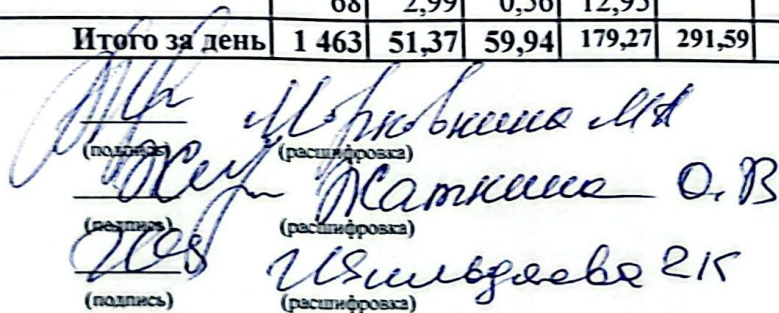 68 2,99 0,56 12,95
Итого за день 1 463 51,37 59,94 179,27 291,59
Морковкина МА
(подпись) (расшифровка)
Жаткина О.В
(подпись) (расшифровка)
(подпись) (расшифровка)